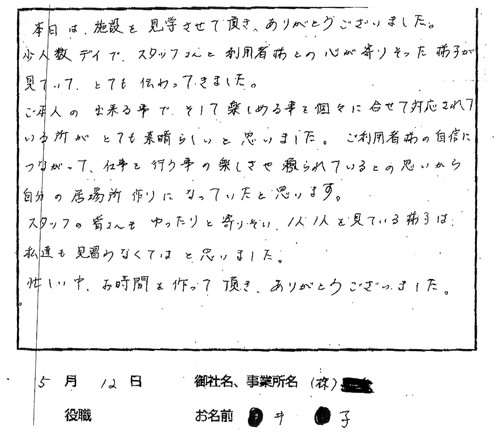 本日は、施設を見学させて頂き、ありがとうございました。
少人数デイで、スタッフさんと利用者様との心が寄りそった様子が
見ていて、とても伝わってきました。
ご本人の出来る事で、そして楽しめる事を個々に合せて対応されて
いる所がとても素晴らしいと思いました。ご利用者様の自信に
つながって、仕事を行う事の楽しさや頼られているとの思いから
自分の居場所作りになっていたと思います。
スタッフの皆さんもゆったりと寄りそい、1人1人を見ている様子は、
私達も見習わなくてはと思いました。
忙しい中、お時間を作って頂き、ありがとうございました。
5月12日 御社名、事業所名 (株)
役職 お名前 井 子